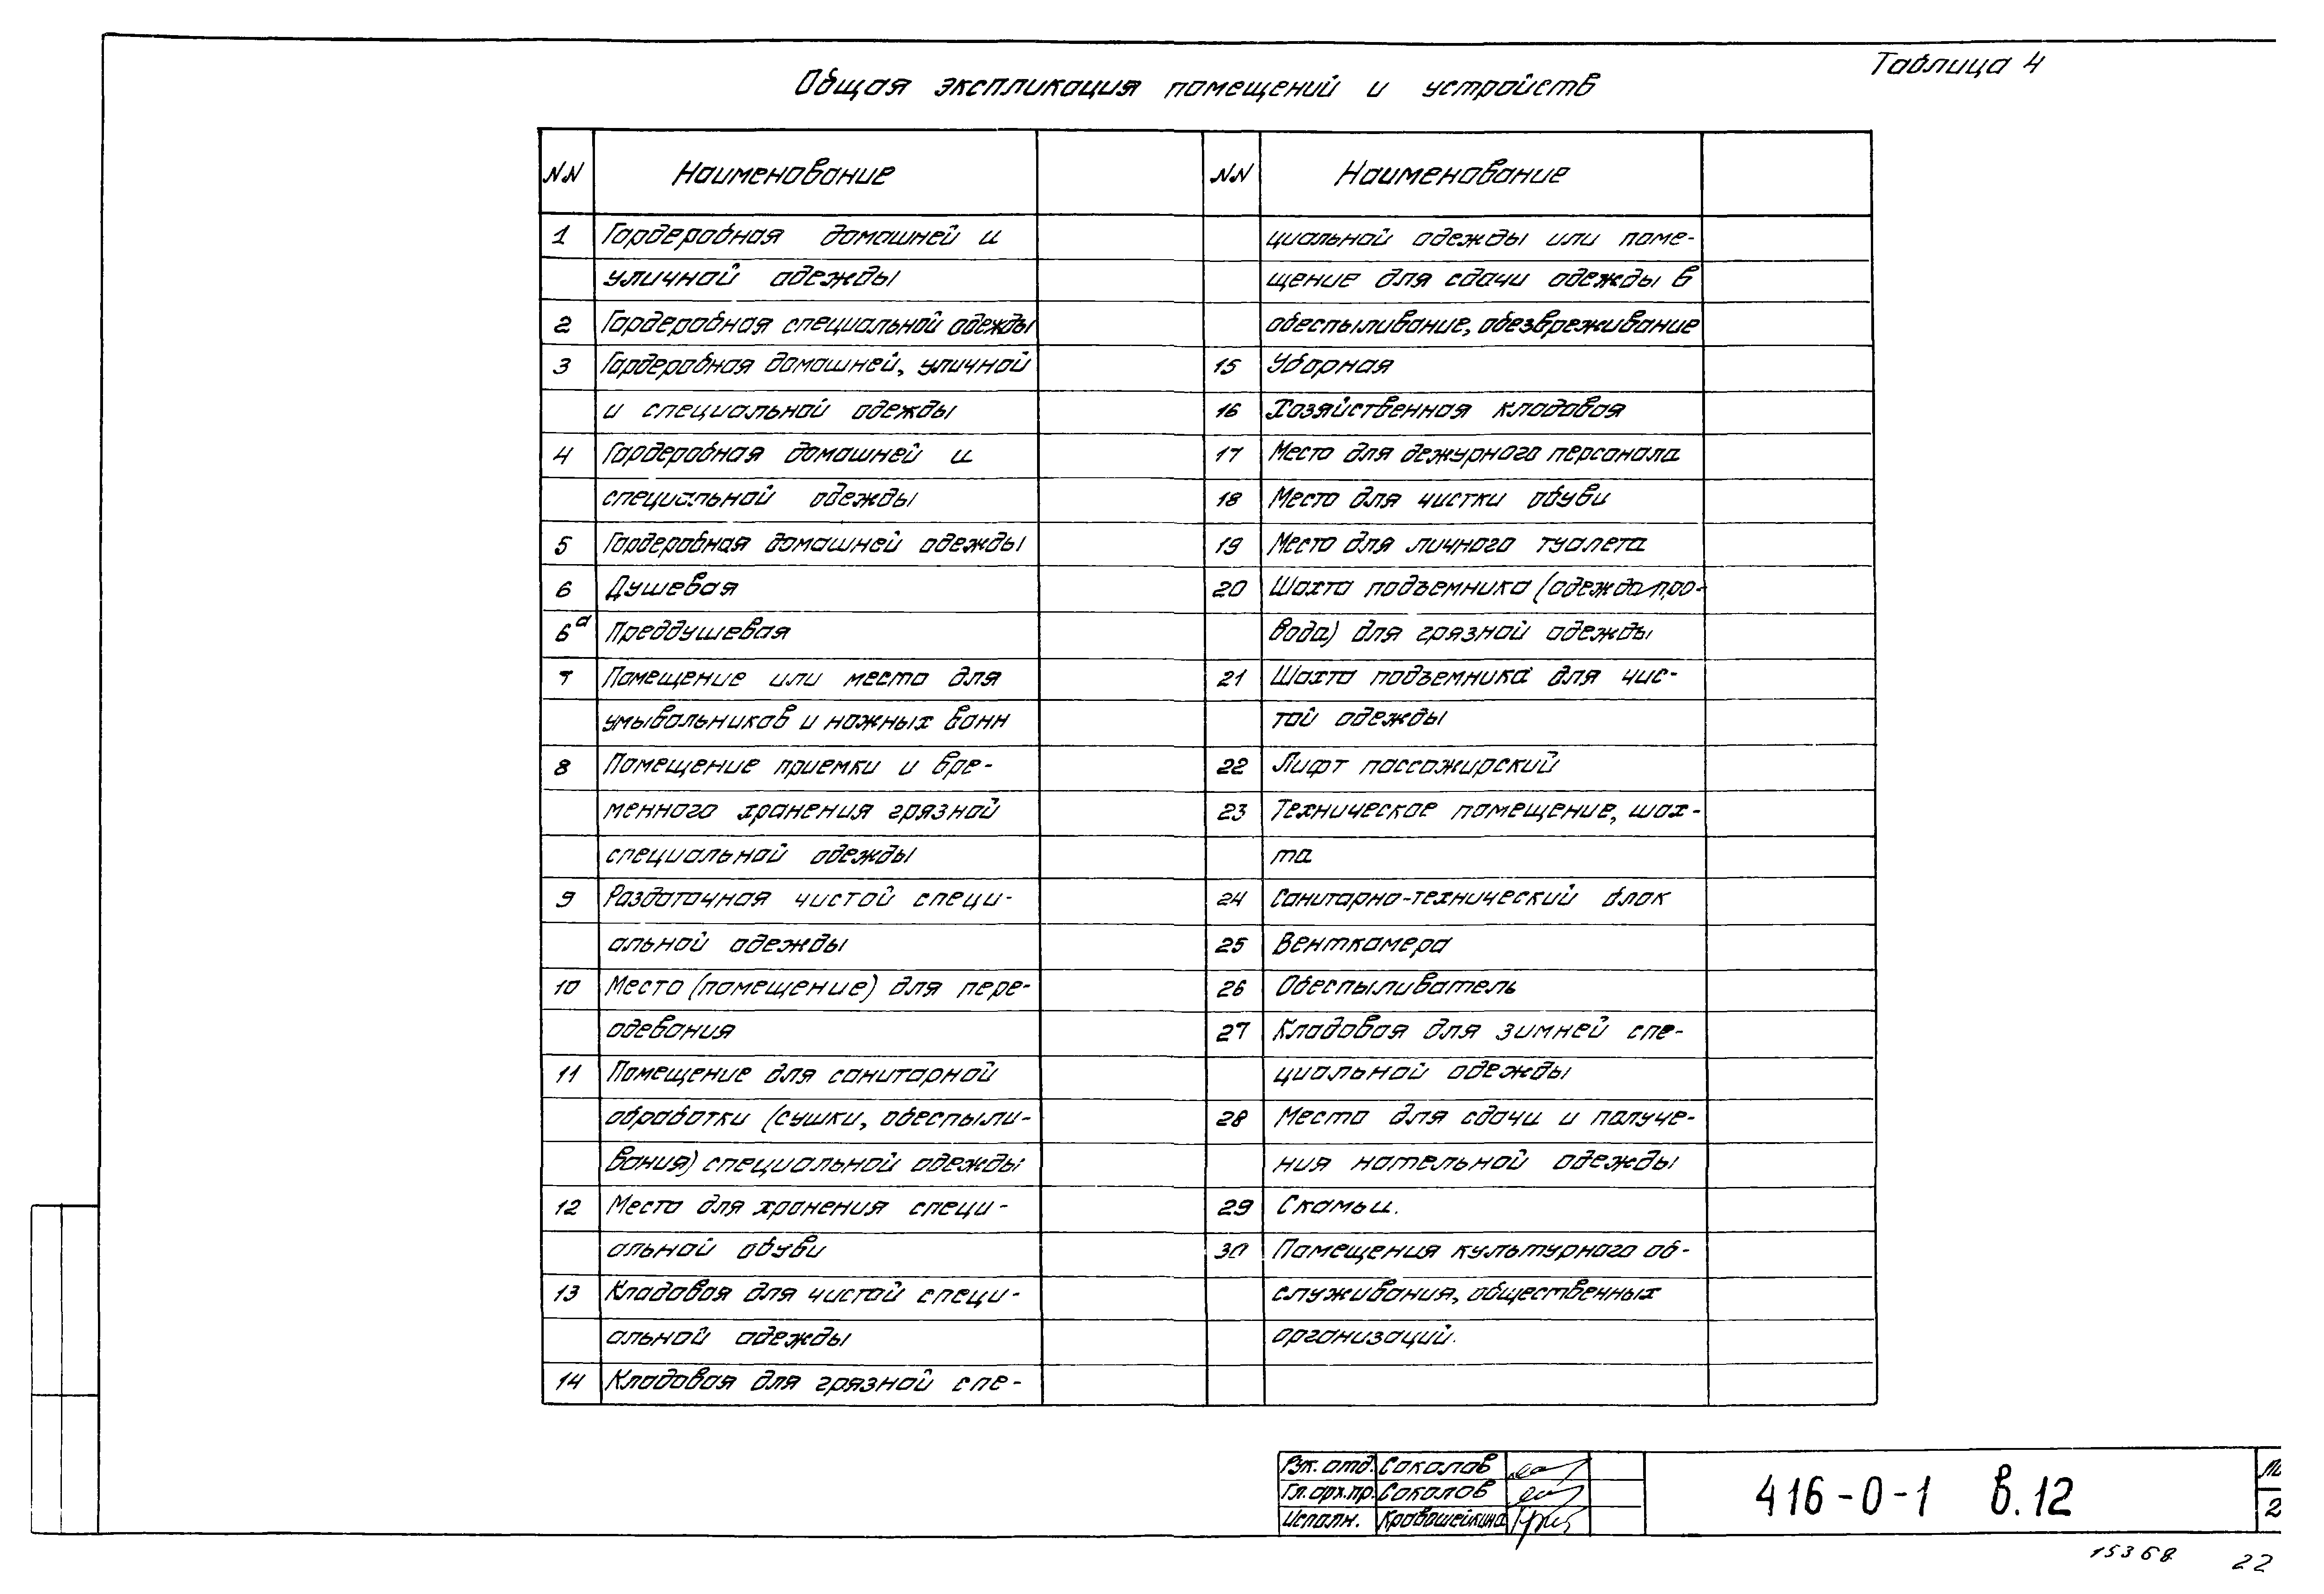 Таблица 4
Общая экспликация помещений и устройств
NN Наименование
1 Гардеробная домашней и
уличной одежды
2 Гардеробная специальной одежды
3 Гардеробная домашней, уличной
и специальной одежды
4 Гардеробная домашней и
специальной одежды
5 Гардеробная домашней одежды
6 Душевая
6а Преддушевая
7 Помещение или место для
умывальников и ножных ванн
8 Помещение приемки и вре-
менного хранения грязной
специальной одежды
9 Раздаточная чистой специ-
альной одежды
10 Место (помещение) для пере-
одевания
11 Помещение для санитарной
обработки (сушки, обеспыли-
вания) специальной одежды
12 Место для хранения специ-
альной обуви
13 Кладовая для чистой специ-
альной одежды
14 Кладовая для грязной спе-
NN Наименование
циальной одежды или поме-
щение для сдачи одежды в
обеспыливание, обезвреживание
15 Уборная
16 Хозяйственная кладовая
17 Место для дежурного персонала
18 Место для чистки обуви
19 Место для личного туалета
20 Шахта подъемника (одеждопро-
вода) для грязной одежды
21 Шахта подъемника для чис-
той одежды
22 Лифт пассажирский
23 Техническое помещение, шах-
та
24 Санитарно-технический блок
25 Венткамера
26 Обеспыливатель
27 Кладовая для зимней спе-
циальной одежды
28 Место для сдачи и получе-
ния нательной одежды
29 Скамьи.
30 Помещения культурного об-
служивания, общественных
организаций.
Рук. отд. Соколов
Гл. арх. пр. Соколов
Исполн. Кравашейкина
416-0-1 в.12
2
15368 22